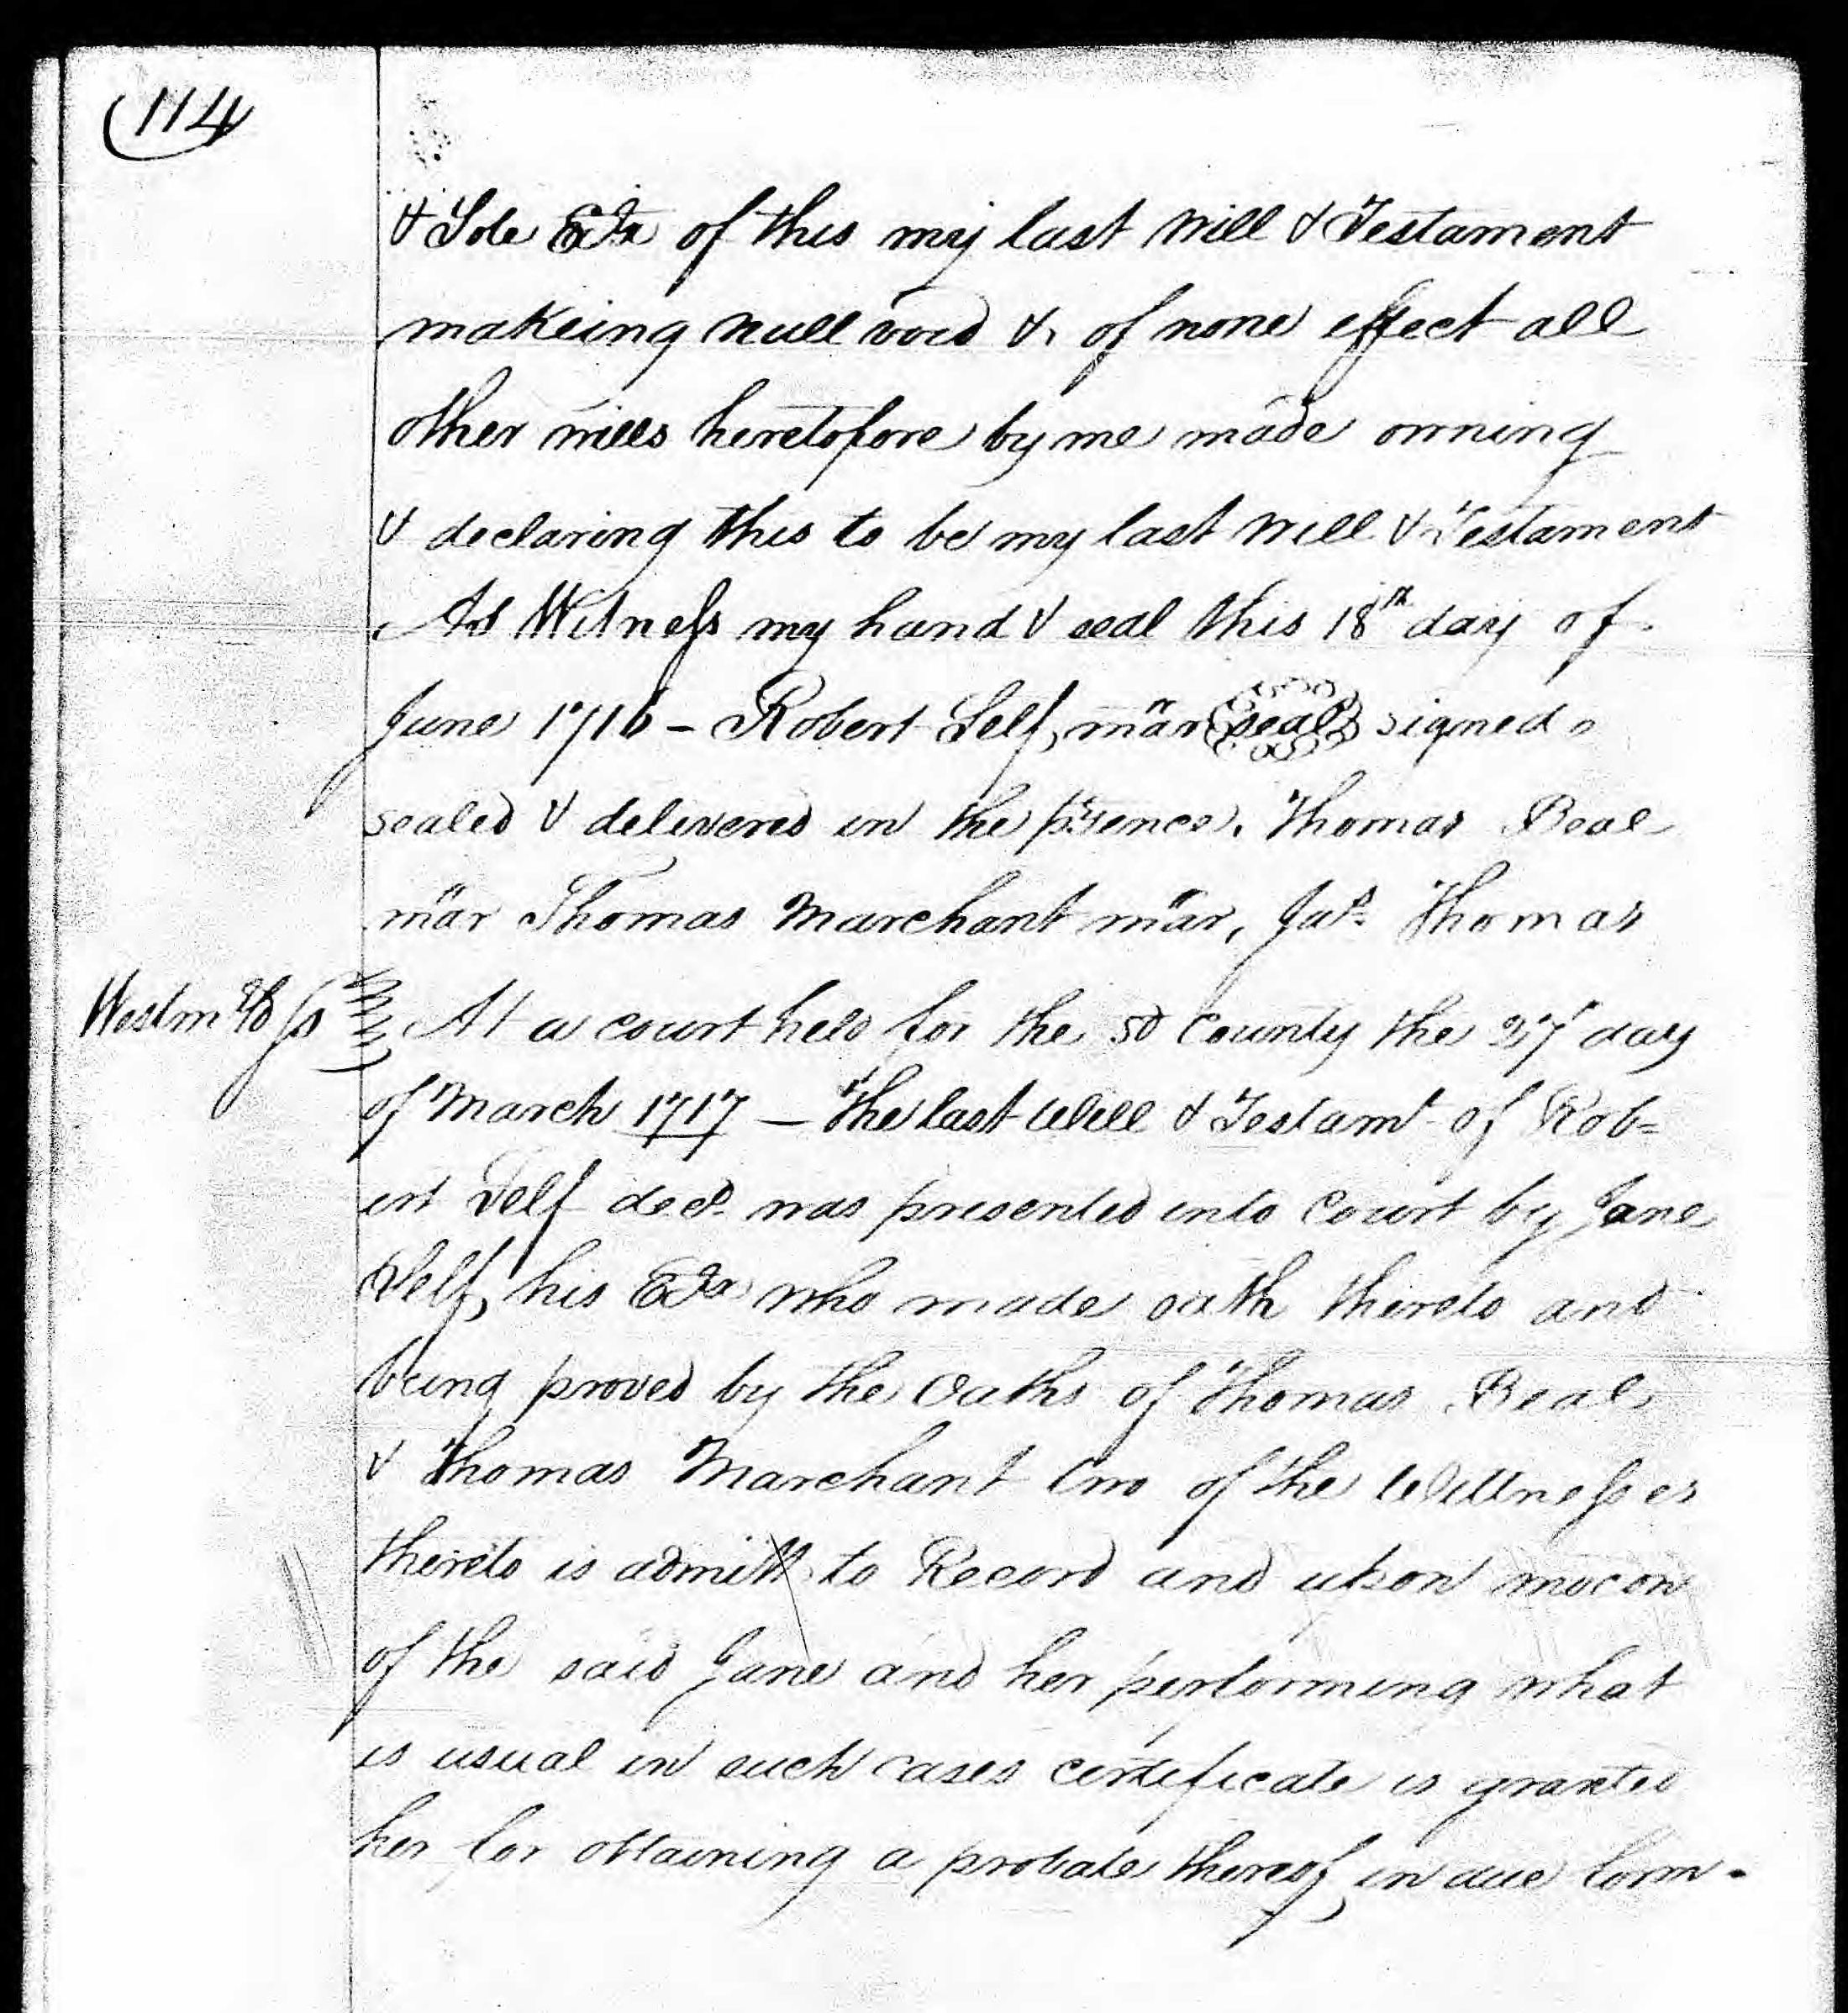 114
& Sole Exx of this my last will & Testament
makeing null void & of none effect all
other wills heretofore by me made owning
& declaring this to be my last will & Testament
As Witness my hand & seal this 18th day of
June 1716 - Robert Self, mar seal signed
sealed & delivered in the psence. Thomas Beal
mar Thomas Marchant mar, Jas. Thomas
Westmd ss At a court held for the sd County the 27 day
of March 1717 — The last Will & Testamt of Rob=
ert Self decd. was presented into Court by Jane
Self, his Exx who made oath thereto and
being proved by the Oaths of Thomas Beal
& Thomas Marchant two of the Wittnesses
thereto is admitt to Record and upon mocon
of the said Jane and her performing what
is usual in such cases certificate is granted
her for obtaining a probate thereof in due form.